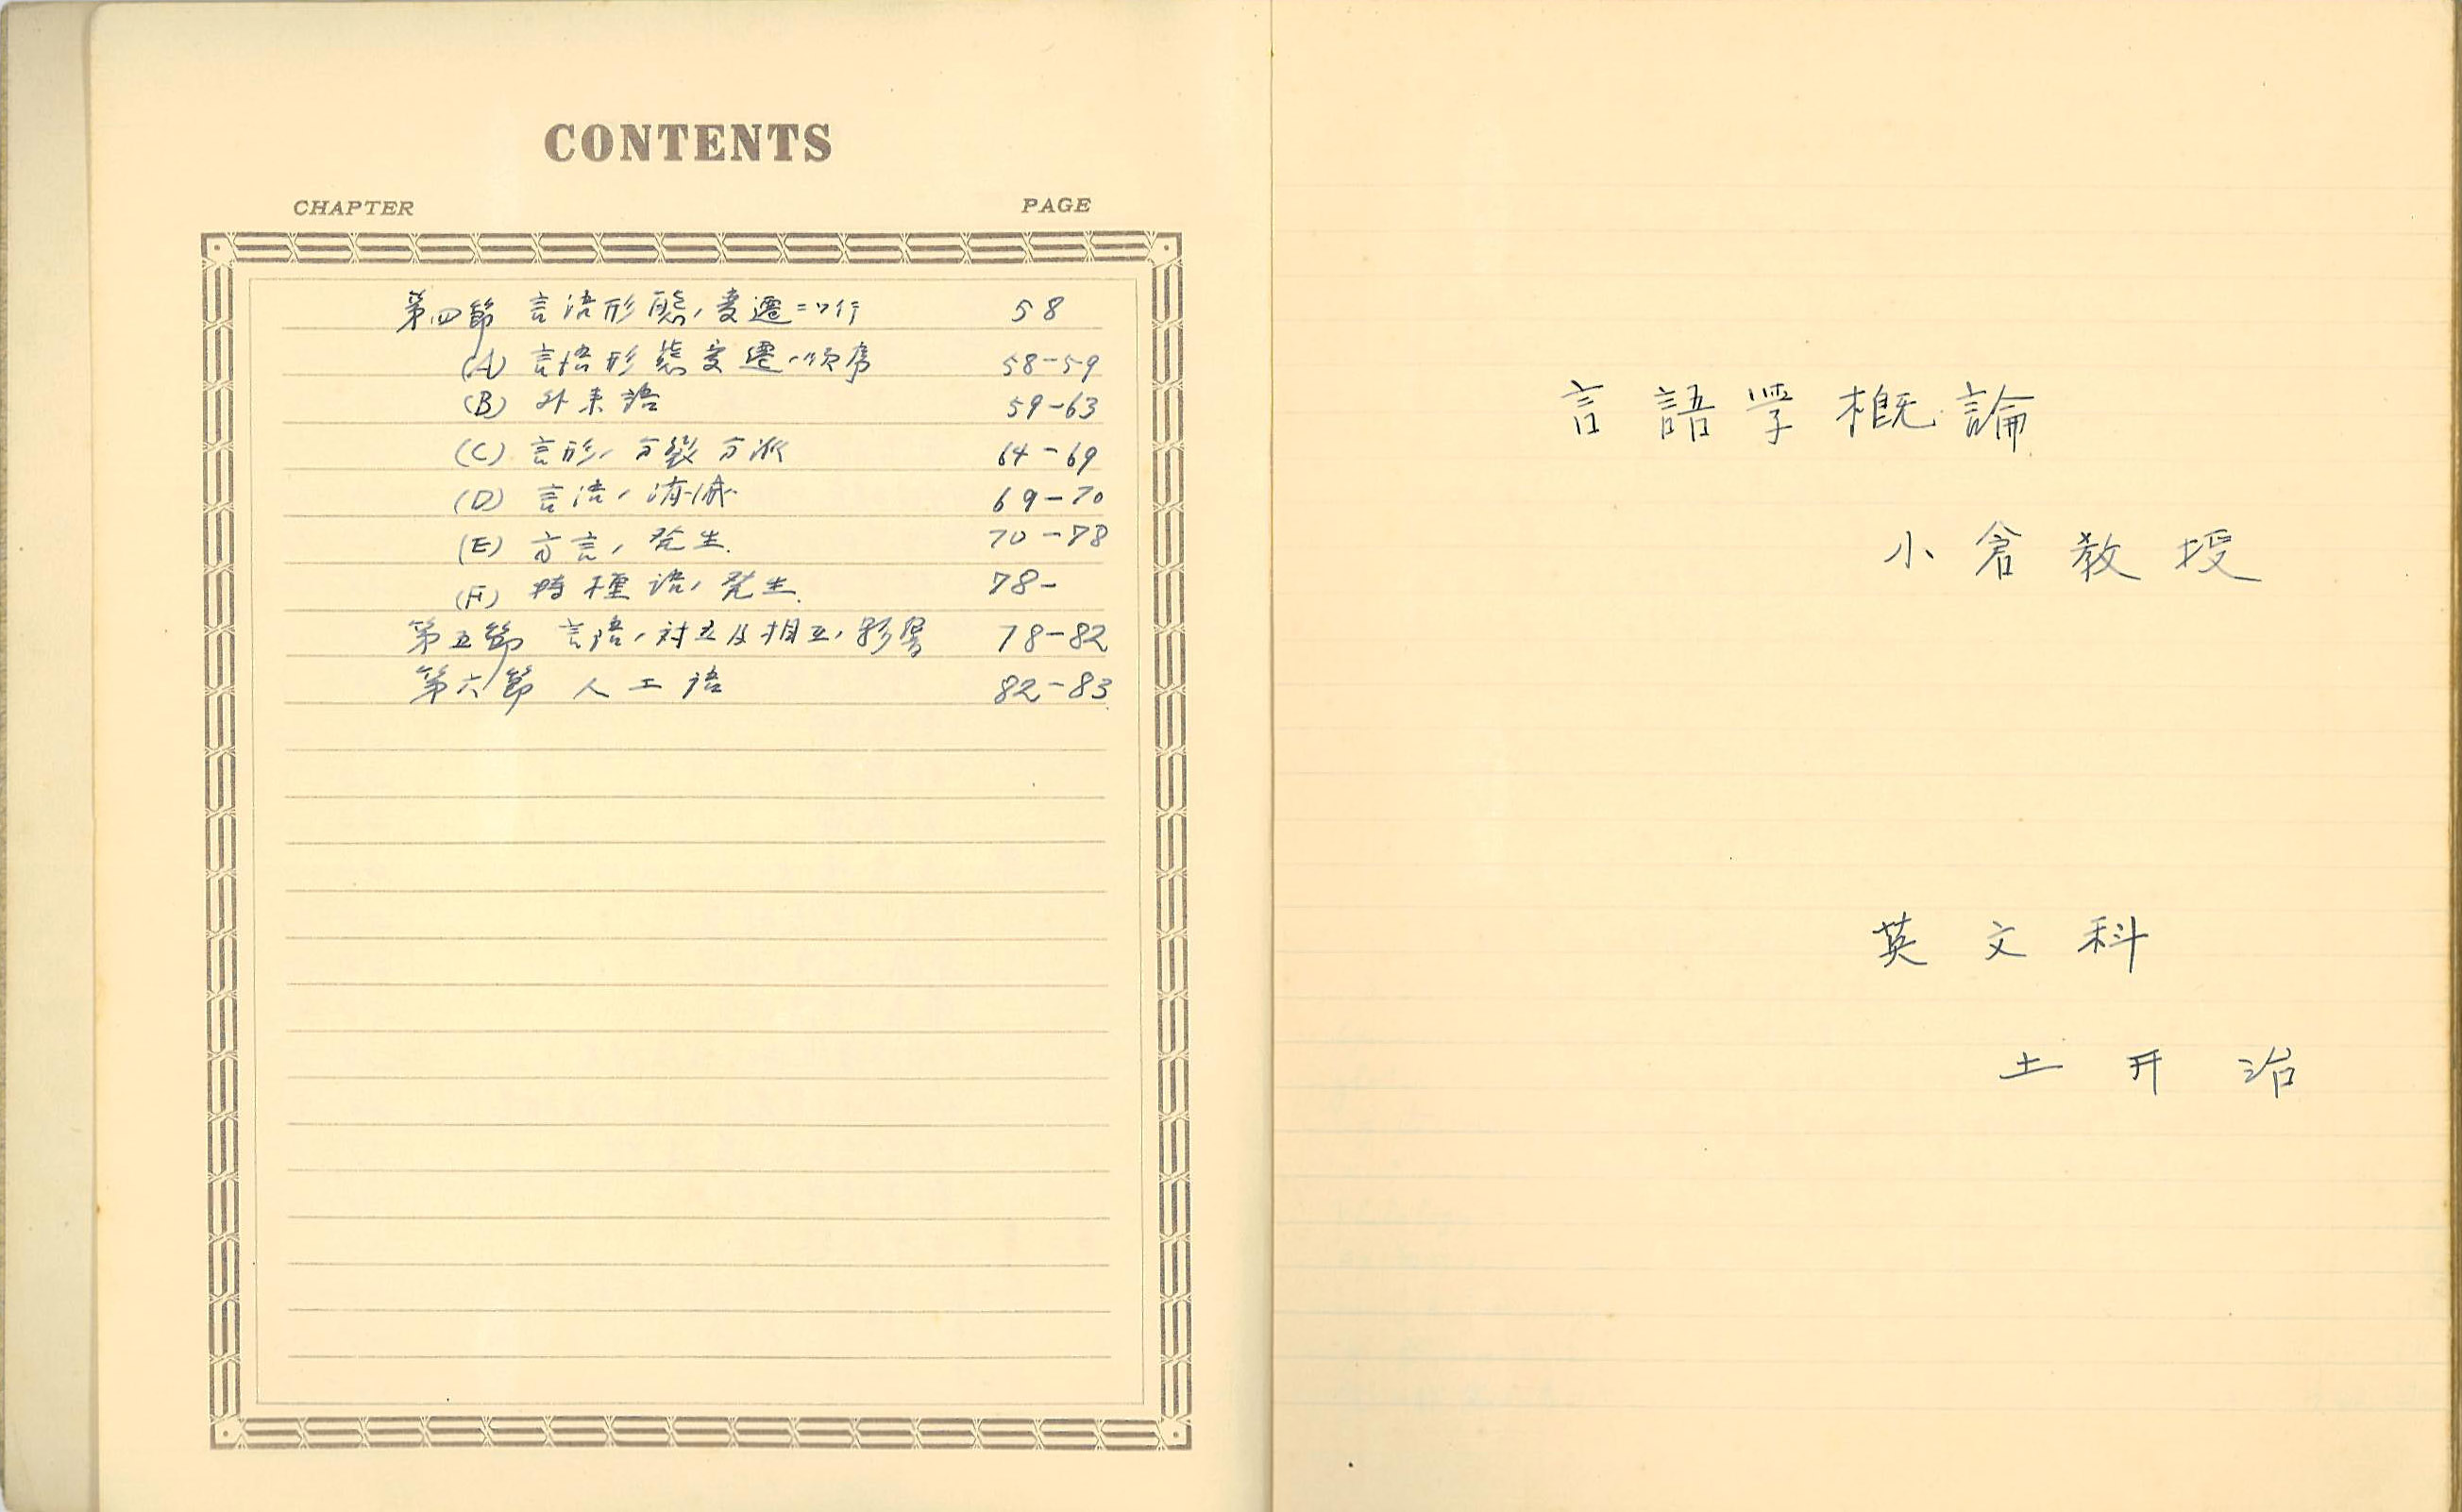 CONTENTS
CHAPTER PAGE
第四節 言語形態ノ変遷ニツイテ 58
(A) 言語形態変遷ノ順序 58-59
(B) 外来語 59-63
(C) 言形ノ分裂分派 64-69
(D) 言語ノ消滅 69-70
(E) 方言ノ発生 70-78
(F) 特種語ノ発生 78-
第五節 言語ノ対立及相互ノ影響 78-82
第六節 人工語 82-83
言語学概論
小倉教授
英文科
土井治